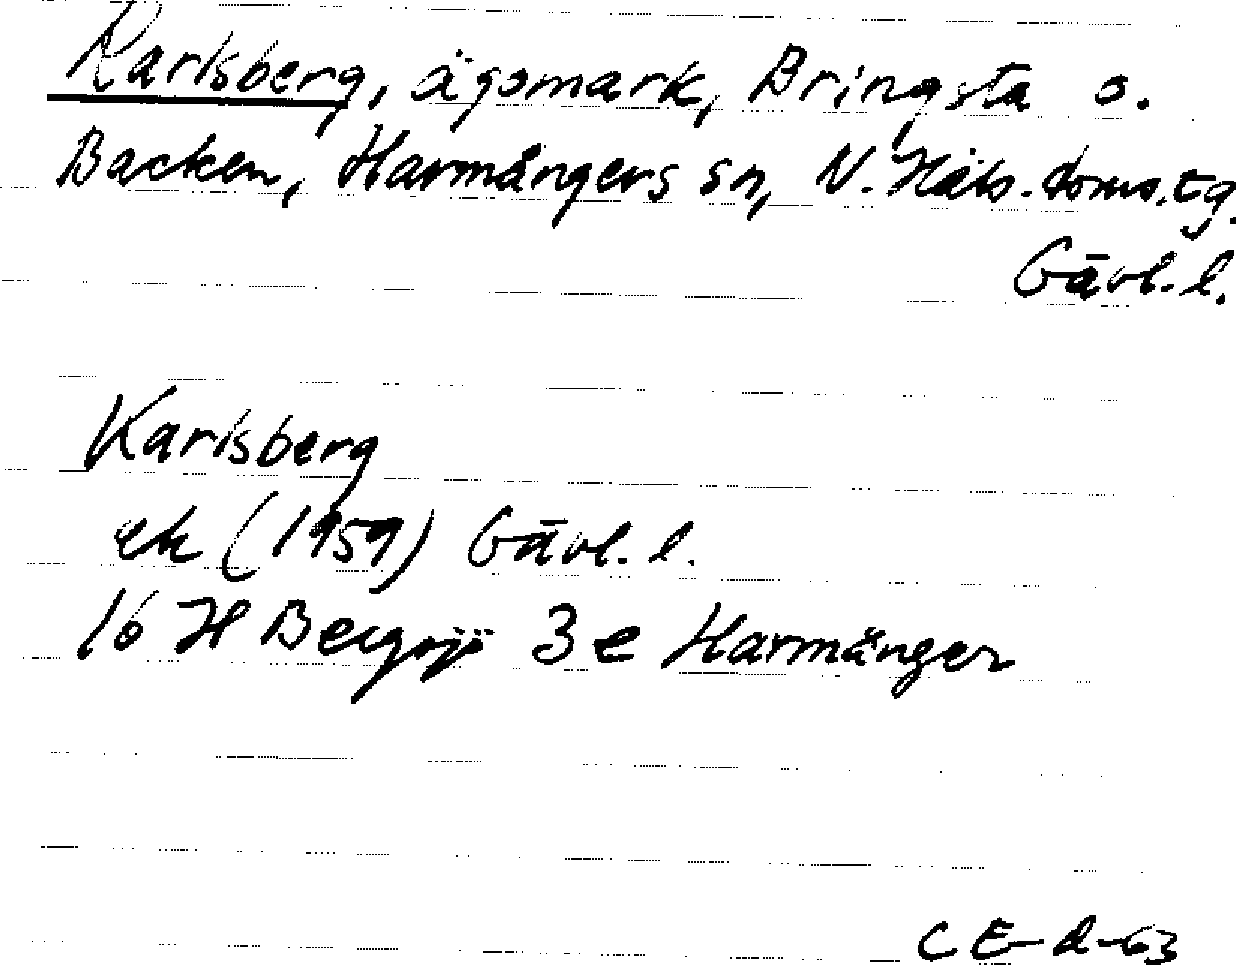 Karlsberg, ägomark, Bringsta o.
Backen, Harmångers sn, N. Häls. doms.tg.
Gävl. l.
Karlsberg
ek (1959) Gävl. l.
16 H Bergsjö 3 e Harmånger
CE-d-63